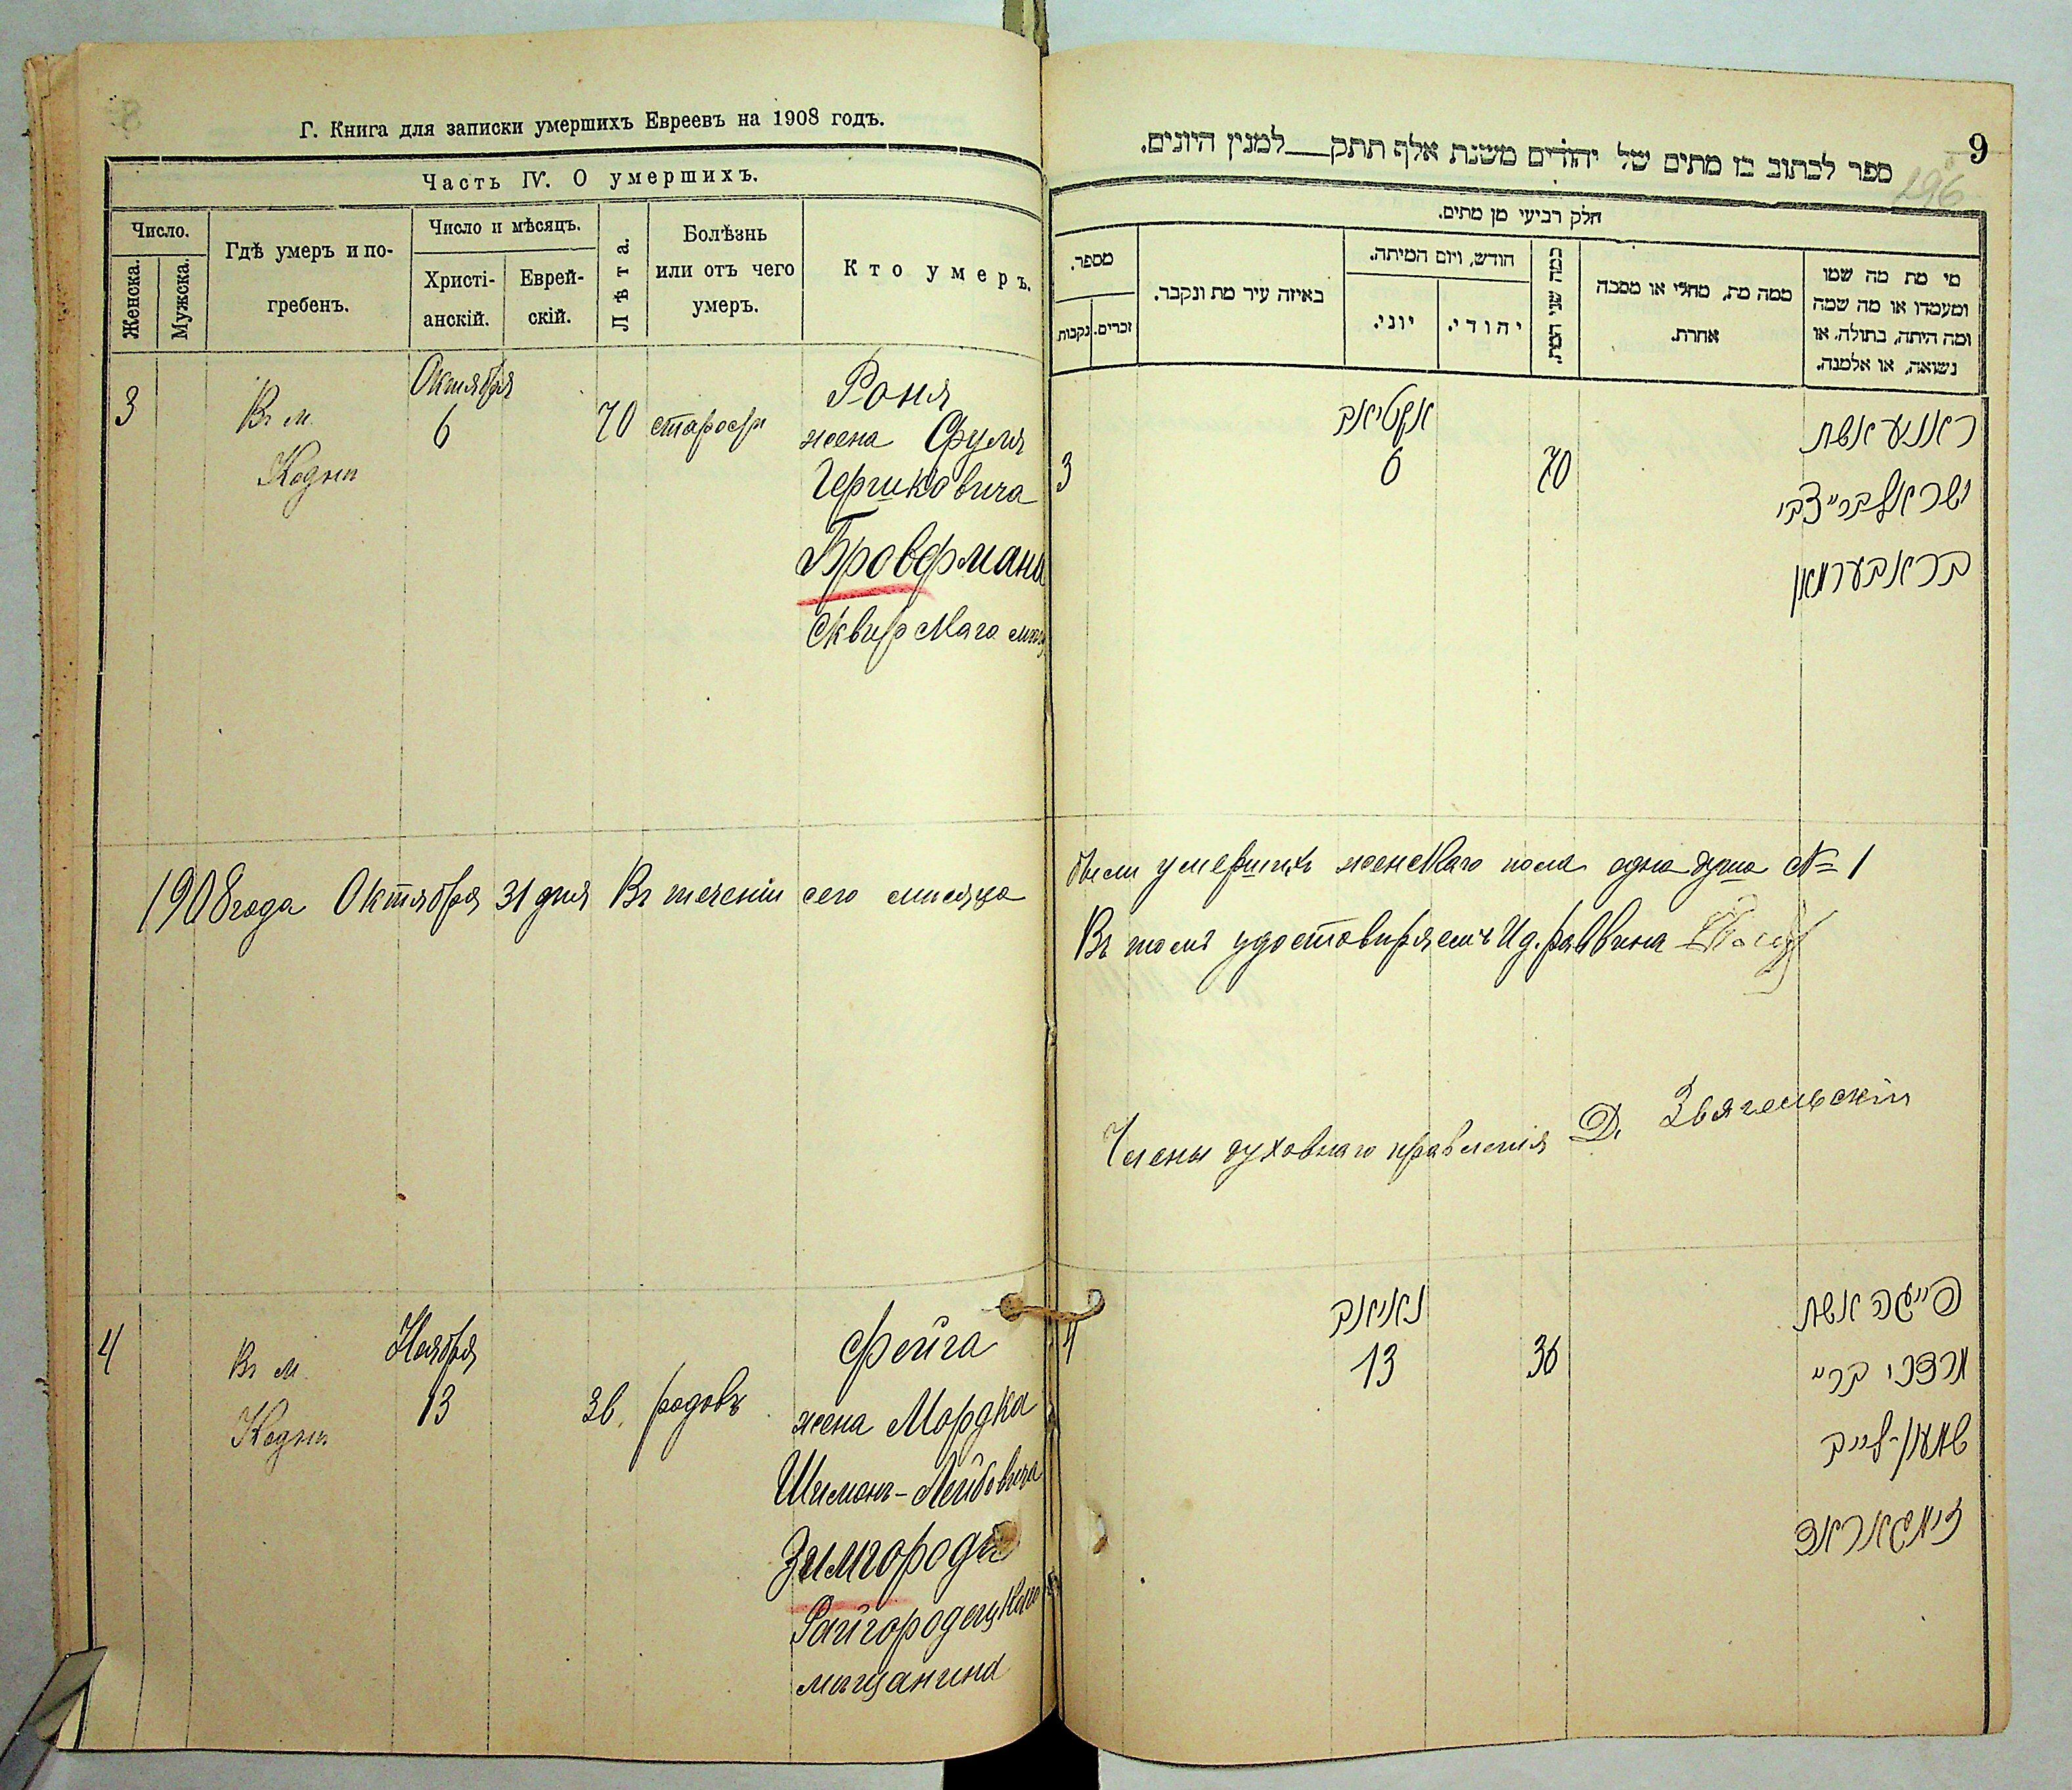 Г. Книга для записки умершихъ Евреевъ на 1908 годъ.
Часть IV. О умершихъ.
Число.
Женска.
Мужска.
Гдѣ умеръ и по-
гребенъ.
Число и мѣсяцъ.
Христі-
анскій.
Еврей-
скій.
Лѣта.
Болѣзнь
или отъ чего
умеръ.
Кто умеръ.
3
Въ м.
Кодни
Октября
6
70
старости
Роня
жена Сруля
Гершковича
Бровермана
Сквирскаго
1908 года Октября 31 дня Въ теченіи сего мисяца
4
Въ м.
Кодни
Ноября
13
36.
родовъ
Фейга
жена Мордка
Шимонъ-Лейбовича
Зимгорода
Райгородецкаго
мищанина
9
196
ספר לכתוב בו מתים של יהודים משנת אלף תתק למנין היונים.
חלק רביעי מן מתים.
מספר.
נקבות
זכרים.
באיזה עיר מת ונקבר.
חודש, ויום המיתה.
יוני.
יהודי.
כמה שני המת.
ממה מת, מחלי או מסבה
אחרת.
מי מת מה שמו
ומעמדו או מה שמה
ומה היתה, בתולה, או
נשואה, או אלמנה.
3
אקטיאב
6
70
ראניע אשת
ישראל בר״ צבי
בראבערמאן
были умершихъ женскаго пола одна душа № 1
Въ томъ удостовиряемъ И д. раввина
Члены духовнаго правленія Д. Звягельскій
4
נאיאב
13
36
פייגה אשת
מרדכי בר״
שמעון-לייב
זימגאראד